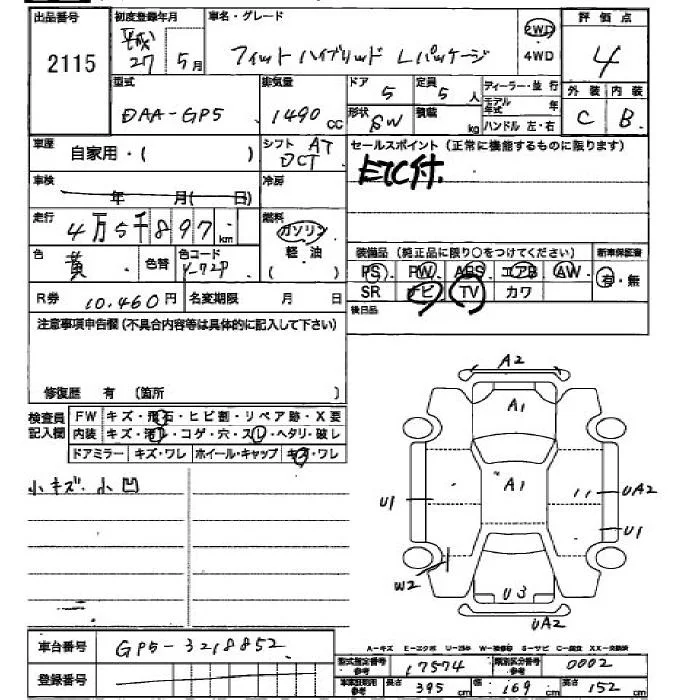 出品番号
2115
初度登録年月
平成27 5月
車名・グレード
フィットハイブリッド Lパッケージ
2WD
4WD
評価点
4
型式
DAA-GP5
排気量
1490 CC
ドア
5
定員
5 人
形状
SW
積載
kg
ディーラー・並行
モデル年式 年
ハンドル 左・右
外装 内装
C B
車歴
自家用・( )
シフト AT
DCT
セールスポイント (正常に機能するものに限ります)
ETC付.
車検
年 月( 日)
冷房
走行
4万5千897 km
燃料
ガソリン
軽・油
( )
色
黄
色替
色コード
Y-72P
装備品 (純正品に限り○をつけてください)
新車保証書
PS PW ABS エアB AW
有・無
SR ナビ TV カワ
R券 10,460円
名変期限 月 日
後日品
注意事項申告欄(不具合内容等は具体的に記入して下さい)
修復歴 有 (箇所 )
検査員記入欄
FW キズ・飛石・ヒビ割・リペア跡・X要
内装 キズ・汚レ・コゲ・穴・スレ・ヘタリ・破レ
ドアミラー キズ・ワレ ホイール・キャップ キズ・ワレ
小キズ・小凹
A2
A1
A1
U1
UA2
U1
W2
U3
UA2
A-キズ E-エクボ U-凹み W-補修跡 S-サビ C-腐食 XX-交換済
車台番号
GP5-3218852
登録番号
型式指定番号 参考
17574
類別区分番号 参考
0002
車庫証明用 参考
長さ 395 cm
幅 169 cm
高さ 152 cm